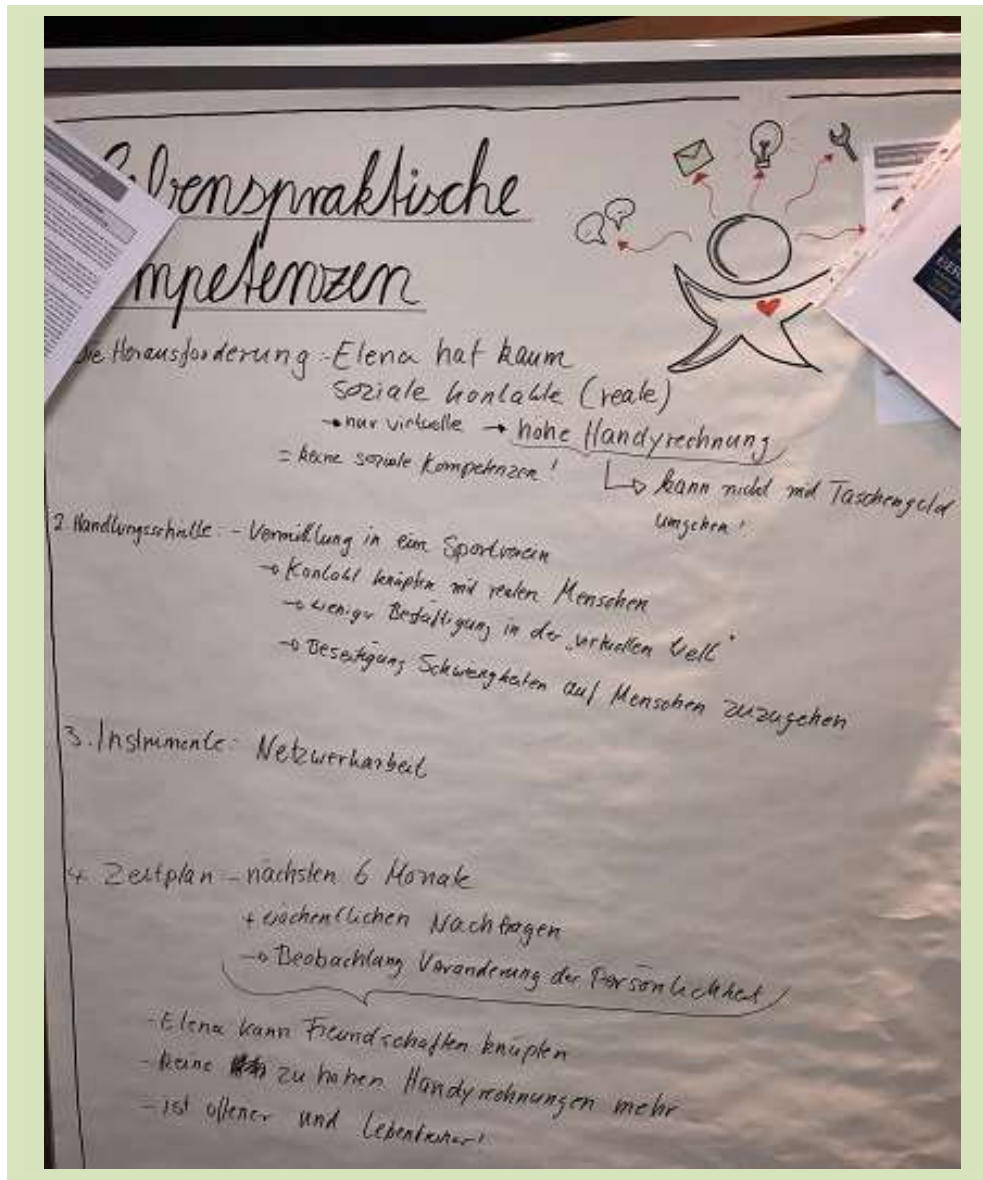 Lebenspraktische
mpetenzen
Die Herausforderung - Elena hat kaum
soziale Kontakte (reale)
→ nur virtuelle → hohe Handyrechnung
= keine soziale Kompetenzen!
↳ kann nicht mit Taschengeld
umgehen!
2. Handlungsschritte - Vermittlung in ein Sportverein
→ Kontakt knüpfen mit realen Menschen
→ weniger Bestätigung in der „virtuellen Welt"
→ Beseitigung Schwierigkeiten auf Menschen zuzugehen
3. Instrumente - Netzwerkarbeit
4 Zeitplan - nächsten 6 Monate
+ wöchentlichen Nachfragen
→ Beobachtung Veränderung der Persönlichkeit
- Elena kann Freundschaften knüpfen
- keine zu hohen Handyrechnungen mehr
- ist offener und